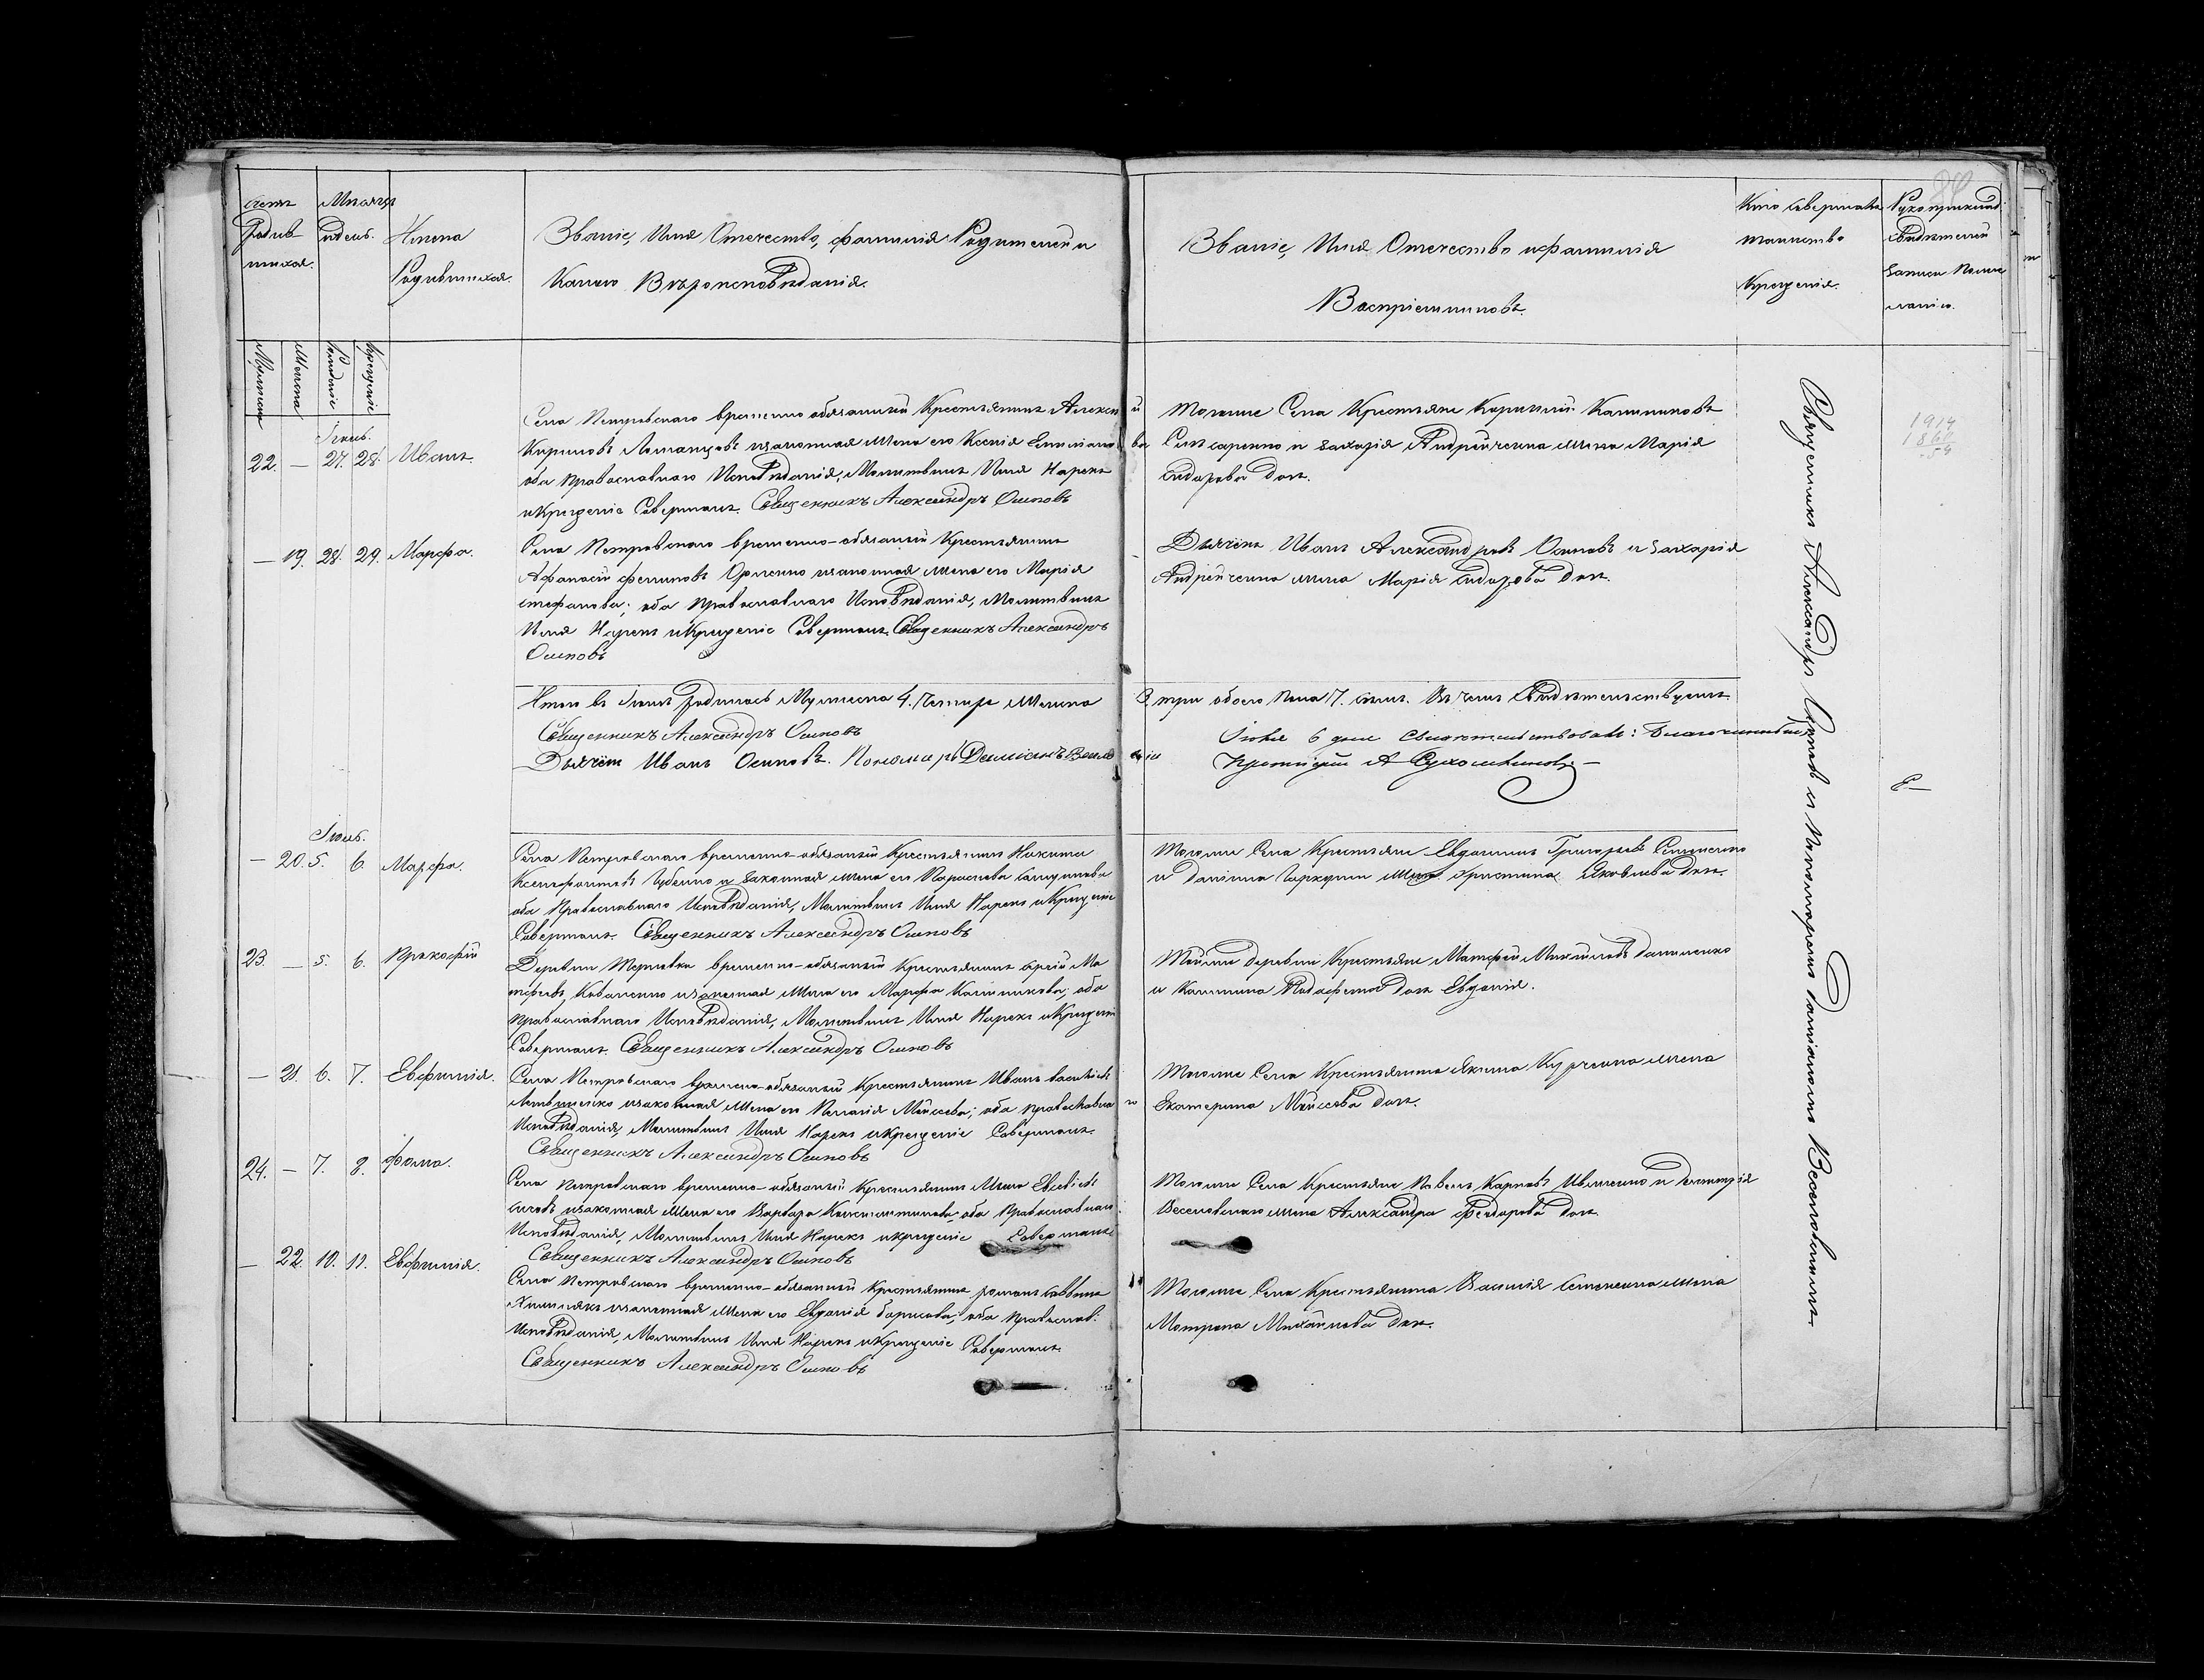 Счетъ
Родив
шихся.
Мѣсяцъ
и день.
Имена
Родившихся.
Званіе, Имя Отечество, фамилія Родителей и
Какого Вѣроисповѣданія.
Званіе, Имя Отечество и фамилія
Воспріемниковъ.
Кто совершалъ
таинство
Крещенія.
Рукоприклад.
свидѣтелей
записи
84
Мужеска
Женска
Рожденіе
Крещеніе
Іюнь.
22. — 27. 28. Иванъ.
Села Петровскаго временно обязанный Крестьянинъ Алексѣй
Кириловъ и законная жена его Ксенія
оба православнаго Исповѣданія, Молитвилъ Имя Нарекъ
и Крещеніе Совершалъ. Священникъ Александръ Осиповъ
Тогоже Села Крестьяне Калиниковъ
и Захарія Андрейченка жена Марія
Сидорова дочь.
1914
1860
54
— 19. 28. 29. Марфа.
Села Петровскаго временно-обязаный Крестьянинъ
Афанасій и законная жена его Марія
Стефанова; оба православнаго Исповѣданія, Молитвилъ
Имя Нарекъ и Крещеніе Совершалъ Священникъ Александръ
Осиповъ
Дьячекъ Иванъ Александровъ Осиповъ и Захарія
Андрейченка жена Марія Сидорова дочь.
Итого въ Іюнѣ родилось Мужеска 4. четыре Женска 3. три обоего пола 7. семь. Въ чемъ Свидѣтельствуемъ
Священникъ Александръ Осиповъ
Дьячекъ Иванъ Осиповъ. Пономарь Даміанъ
Іюля 6 дня Свидѣтельствовалъ: Благочинный
А Сухомлиновъ
Іюль.
— 20. 5. 6. Марфа.
Села Петровскаго временно-обязаный Крестьянинъ Никита
Ксенофонтовъ Губенко и законная жена его Параскева
оба Православнаго Исповѣданія, Молитвилъ Имя Нарекъ и Крещеніе
Совершалъ. Священникъ Александръ Осиповъ
Тогоже Села Крестьяне Евдокимъ Григорьевъ
и Даніила жена Христина Яковлева дочь.
23. — 5. 6. Прокофій
Деревни временно-обязаный Крестьянинъ Сергій Ма
тфѣевъ Коваленко и законная жена его Марфа Калиникова; оба
православнаго Исповѣданія, Молитвилъ Имя Нарекъ и Крещеніе
Совершалъ. Священникъ Александръ Осиповъ
Тойже деревни Крестьяне Матфѣй Михайловъ Даниленко
и Калиника дочь Евдокія.
— 21. 6. 7. Евфимія.
Села Петровскаго временно-обязаный Крестьянинъ Иванъ
Литвиненко и законная жена его Пелагія Моисеева; оба православнаго
Исповѣданія, Молитвилъ Имя Нарекъ и Крещеніе Совершалъ.
Священникъ Александръ Осиповъ
Тогоже Села Крестьянина Якима жена
Екатерина Моисеева дочь.
24. — 7. 8. Фома.
Села Петровскаго временно-обязаный Крестьянинъ
и законная жена его Варвара Константинова; оба Православнаго
Исповѣданія, Молитвилъ Имя Нарекъ и крещеніе Совершалъ
Священникъ Александръ Осиповъ
Тогоже Села Крестьяне Павелъ Карповъ и Димитрія
Веселовскаго жена Александра Федорова дочь.
— 22. 10. 11. Евфимія.
Села Петровскаго временно-обязанный Крестьянинъ Романъ Саввинъ
и законная жена его Евдокія Борисова; оба православ.
Исповѣданія, Молитвилъ Имя Нарекъ и Крещеніе Совершалъ.
Священникъ Александръ Осиповъ
Тогоже Села Крестьянина Василія жена
Матрона Михайлова дочь.
Священникъ Александръ Осиповъ и Пономаремъ Даміаномъ Веселовскимъ.